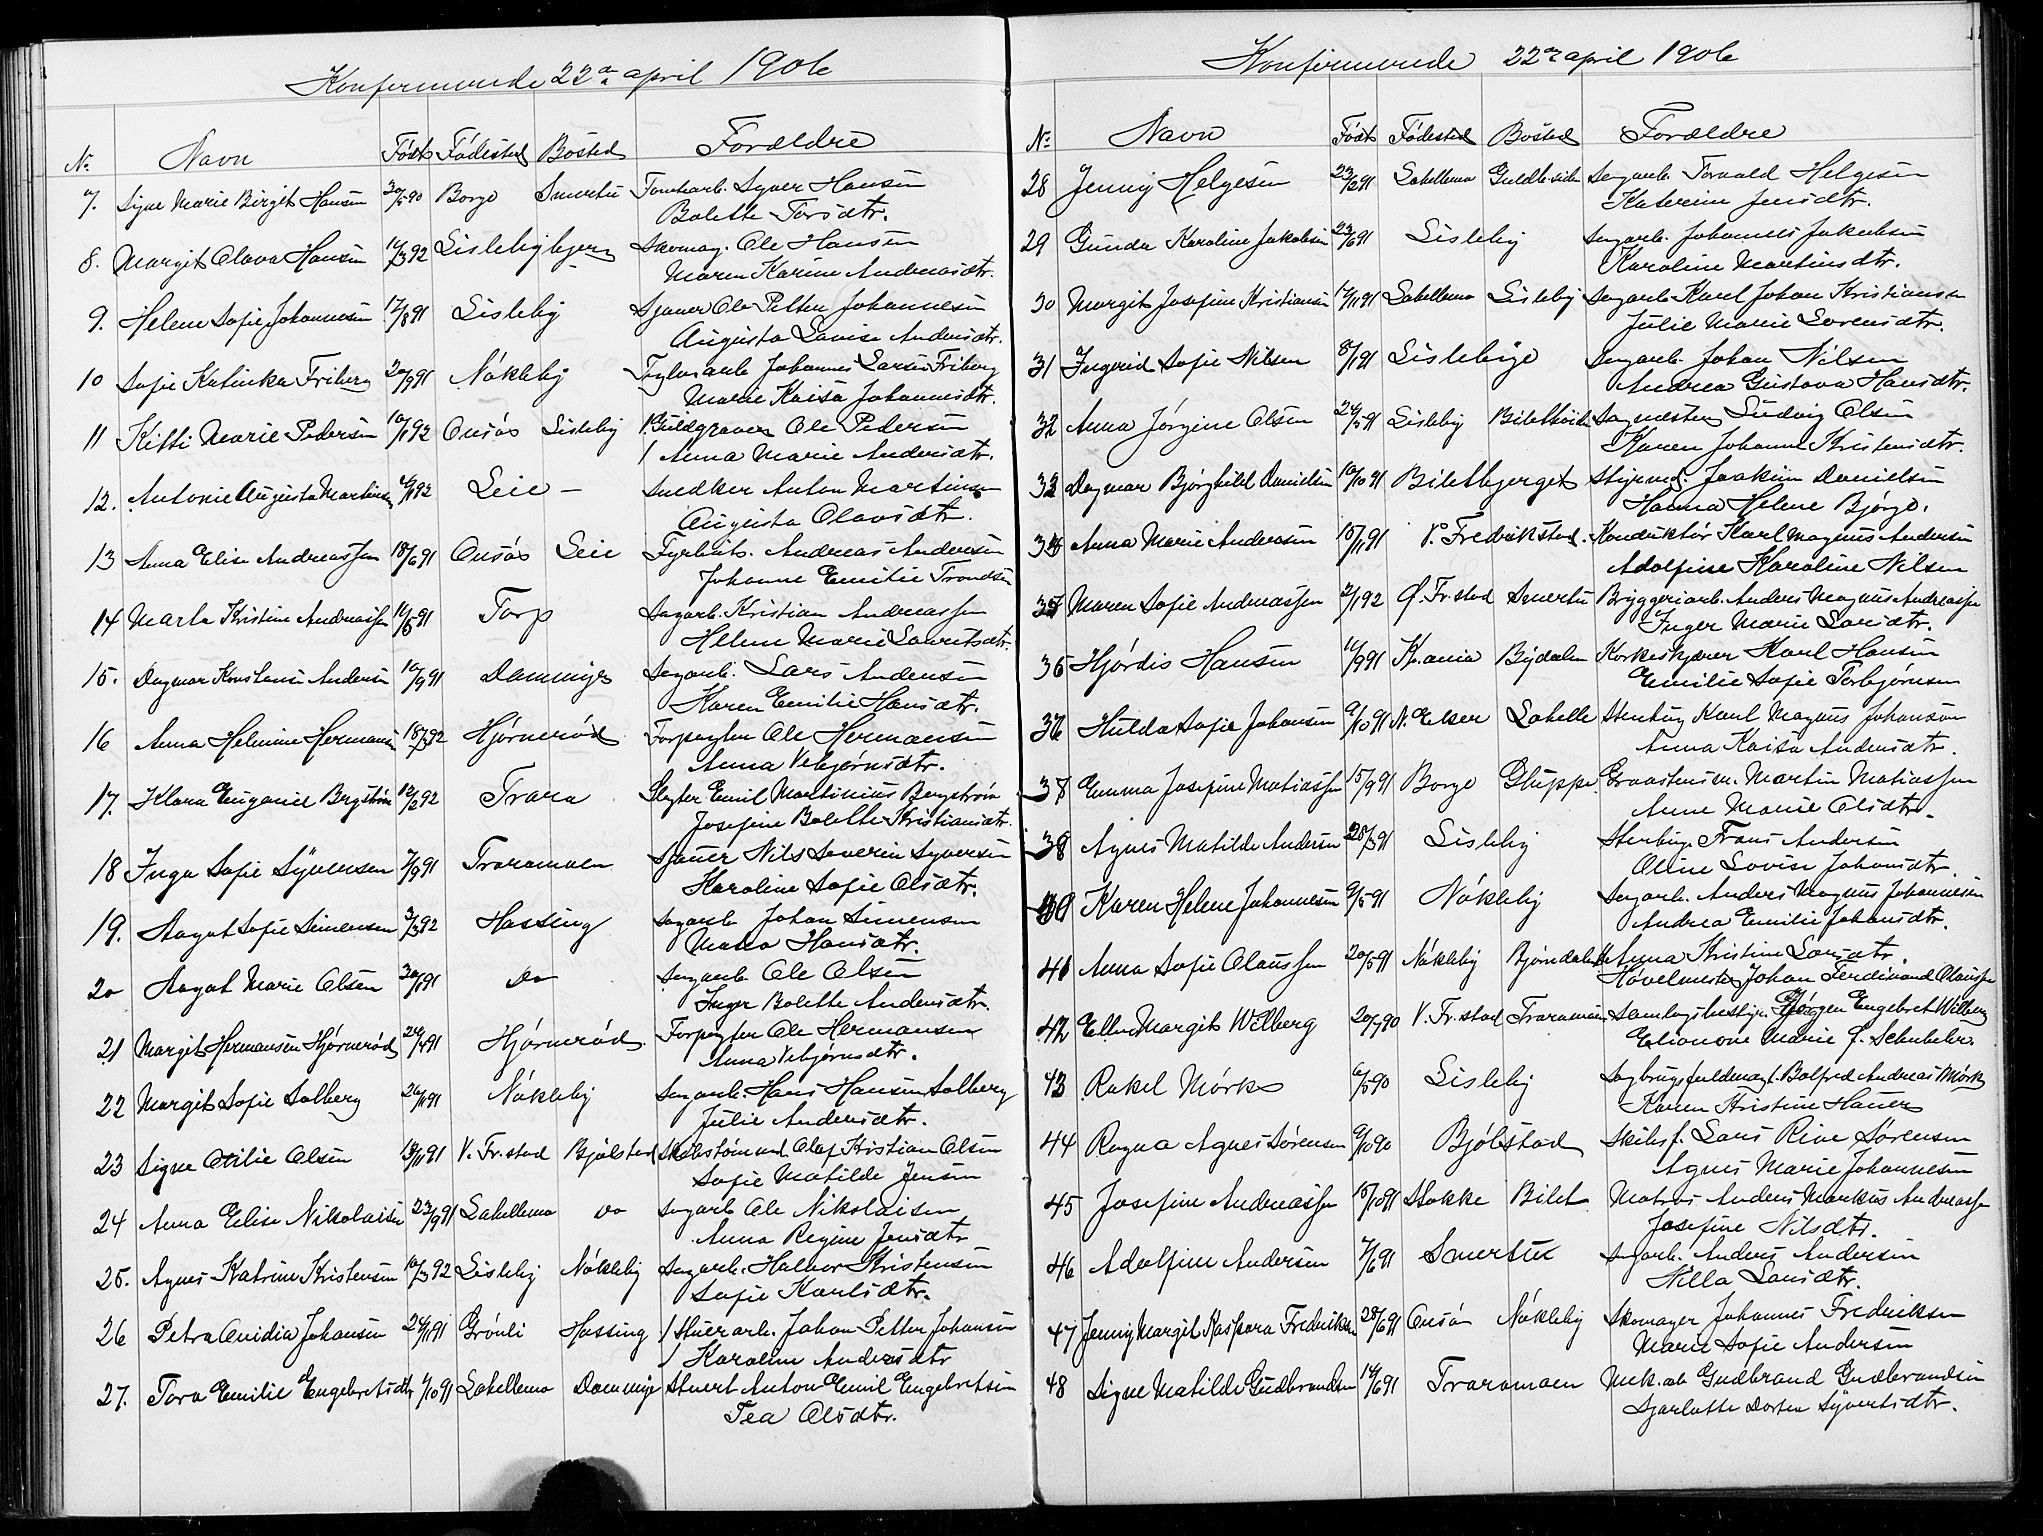 Konfirmerede 22de april 1906
No Navn Født Fødested Bosted Forældre
7. Signe Marie Birgit Hansen 30/5 90 Borge Smertu Tomtearb. Syver Hansen
Bolette Torsdtr.
8. Margit Olava Hansen 12/3 92 Lislebybjerg Skomag. Ole Hansen
Maren Karine Andreasdtr.
9. Helene Sofie Johannesen 17/8 91 Lisleby Sjauer Ole Petter Johannesen
Augusta Lovise Andersdtr.
10 Sofie Katinka Friberg 20/9 91 Nökleby Teglv.arb. Johannes Larsen Friberg
Marie Kaisa Johannesdtr.
11 Kitti Marie Pedersen 10/1 92 Onsøs Lisleby Guldgraver Ole Pedersen
Anna Marie Andersdtr.
12. Antonie Augusta Martinsen 92 Leie – Snedker Anton Martinsen
Augusta Olavsdtr.
13 Anna Elise Andreassen 18/6 91 Onsøs Leie Fyrbøt. Andreas Andersen
Johanne Emilie Trondsen
14 Marta Kristine Andreassen 11/5 91 Torp Sagarb. Kristian Andreassen
Helene Marie Lauritsdtr.
15. Dagmar Konstanse Andersen 10/9 91 Dammyr Sagarb. Lars Andersen
Karen Emilie Hansdtr.
16 Anna Helmine Hermansen 18/3 92 Hjørnerød Forpagter Ole Hermansen
Anna Vebjørnsdtr.
17. Klara Eugenie Bergstrøm 12/2 92 Trara Slagter Emil Martinius Bergstrøm
Josefine Bolette Kristiansdtr.
18 Inga Sofie Syversen 7/9 91 Traramoen Sjauer Nils Severin Syversen
Karoline Sofie Olsdtr.
19. Aagot Sofie Simensen 3/3 92 Hassing Sagarb Johan Simensen
Maria Hansdtr.
20 Aagot Marie Olsen 91 do Sagarb Ole Olsen
Inger Bolette Andersdtr.
21 Margit Hermansen Hjørnerød 24/4 91 Hjørnerød Forpagter Ole Hermansen
Anna Vebjørnsdtr.
22 Margit Sofie Solberg 26/11 91 Nökleby Sagarb. Hans Hansen Solberg
Julie Andersdtr.
23 Signe Otilie Olsen 13/11 91 V. Fr.stad Bjølstad Skibstømmermd. Olaf Kristian Olsen
Sofie Matilde Jensen
24 Anna Elise Nikolaisen 23/9 91 Labellemo do Sagarb Ole Nikolaisen
Anna Regine Jensdtr
25. Agnes Katrine Kristensen 10/3 92 Lisleby Nökleby Sagarb. Halvor Kristensen
Sofie Karlsdtr.
26 Petra Ovidia Johansen 24/11 91 Grønli Hassing Stuerarb. Johan Petter Johansen
Karoline Andersdtr
27. Tora Emilie Engebretsdtr 1/10 91 Labellemo Dammyr Stuert Anton Emil Engebretsen
Tea Olsdtr.
Konfirmerede 22de april 1906
No Navn Født Fødested Bosted Forældre
28 Jenny Helgesen 23/2 91 Labellemo Guldb.siden Sagarb. Torvald Helgesen
Katerine Jensdtr.
29 Gunda Karoline Jakobsen 23/6 91 Lisleby Sagarb. Johannes Jakobsen
Karoline Martinsdtr.
30 Margit Josefine Kristiansen 12/11 91 Labellemo Lisleby Sagarb Karl Johan Kristiansen
Julie Marie Lorensdtr.
31 Ingerid Sofie Nilsen 8/1 91 Lislebyø Sagarb. Johan Nilsen
Andrea Gustava Hansdtr.
32 Anna Jørgine Olsen 24/5 91 Lisleby Biletkrysset Sagmester Ludvig Olsen
Karen Johanne Kristensdtr.
33 Dagmar Bjørghild Danielsen 10/10 91 Biletbjerget Styrmd. Joakim Danielsen
Hanna Helene Bjørge.
34 Anna Marie Andersen 15/11 91 V. Fredrikstad. Konduktør Karl Magnus Andersen
Adolfine Karoline Nilsen
35 Maren Sofie Andreassen 3/1 92 Ø. Fr.stad Smertu Bryggeriarb. Anders Magnus Andreassen
Inger Marie Larsdtr.
36 Hjørdis Hansen 11/9 91 Kr.ania Bydalen Korkeskjærer Karl Hansen
Emilie Sofie Torbjørnsen
37 Hulda Sofie Johansen 9/10 91 N. Eker Labelle Stenhug Karl Magnus Johansen
Anna Kaisa Andersdtr.
38 Emma Josefine Matiassen 15/9 91 Borge Gluppe Graastensm. Martin Matiassen
Anne Marie Olsdtr.
39 Agnes Matilde Andersen 28/3 91 Lisleby Stenhug Frans Andersen
Oline Lovise Johansdtr.
40 Karen Helene Johannesen 9/5 91 Nökleby Sagarb. Anders Magnus Johannesen
Andrea Emilie Johansdtr.
41 Anna Sofie Olaussen 20/5 91 Nökleby Bjørndalen Anna Kristine Larsdtr.
Høvelmester Johan Ferdinand Olaussen
42 Ellen Margit Wilberg 20/7 90 V. Fr.stad Traramoen Samlagsbestyr. Jørgen Engebret Wilberg
Elionore Marie f. Schubeler.
43 Rakel Mørk 6/5 90 Lisleby Sagbrugsfuldmægt. Bolfred Andreas Mørk
Karen Kristine Hauer
44 Ragna Agnes Sørensen 9/10 90 Bjølstad Skibsf. Lars Rive Sørensen
Agnes Marie Johannesen
45 Josefine Andreassen 15/10 91 Stokke Bilet Matros Anders Markus Andreassen
Josefine Nilsdtr.
46 Adolfine Andersen 7/6 91 Smertu Sagarb. Anders Andersen
Nilla Larsdtr.
47 Jenny Margit Kaspara Fredriksen 28/6 91 Onsø Nökleby Skomager Johannes Fredriksen
Marie Sofie Andersen
48 Signe Matilde Gudbrandsen 14/6 91 Traramoen Mek.arb Gudbrand Gudbrandsen
Sjarlotte Dortea Syvertsdtr.